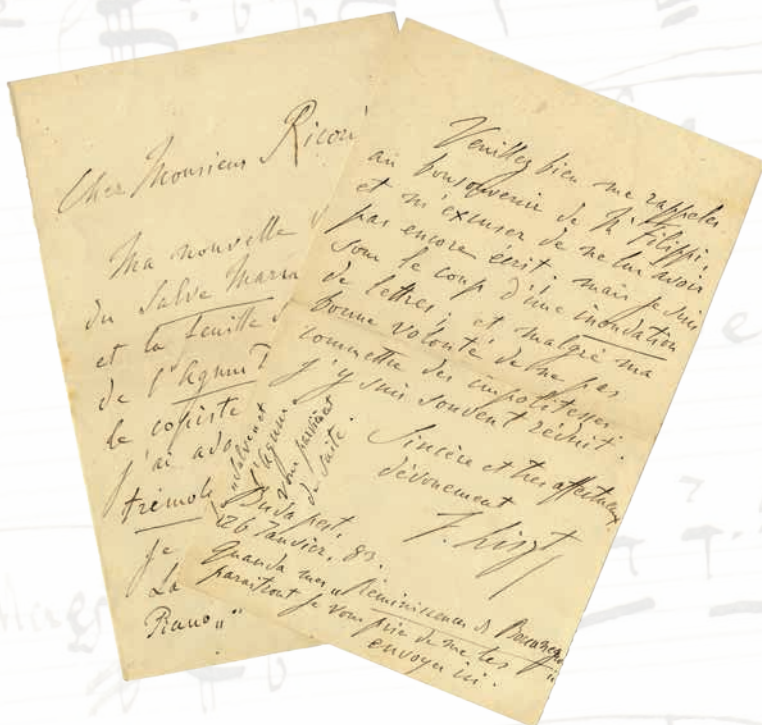 Cher Monsieur Ricor
Ma nouvelle
du Salve Maria
et la feuille
de l'Agnus
le copiste
j'ai ado
trémolo
je
La
Piano"
Veuillez bien me rappeler
au bonsouvenir de Mr Filippi,
et m'excuser de ne lui avoir
pas encore écrit; mais je suis
sous le coup d'une inondation
de lettres; et malgré ma
bonne volonté de ne pas
commettre des impolitesses,
j'y suis souvent réduit.
Sincère et très affectueux
dévouement
F. Liszt
"Salve" et
l'Agnus
vous parviennent
de suite.
Budapest,
26 Janvier, 83.
Quand mes "Réminiscences de Boccanegra"
paraitront je vous prie de me les
envoyer ici.